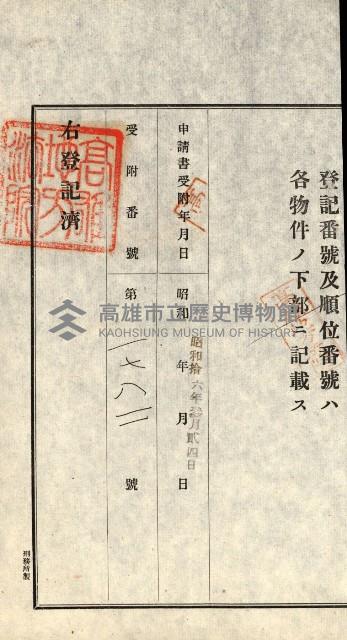 登記番號及順位番號ハ
各物件ノ下部ニ記載ス
申請書受附年月日 昭和 年 月 日
昭和拾六年 月貳四日
受附番號 第 一七八二 號
右登記濟
高雄地方法院
刑務所製
高雄市立歷史博物館
KAOHSIUNG MUSEUM OF HISTORY